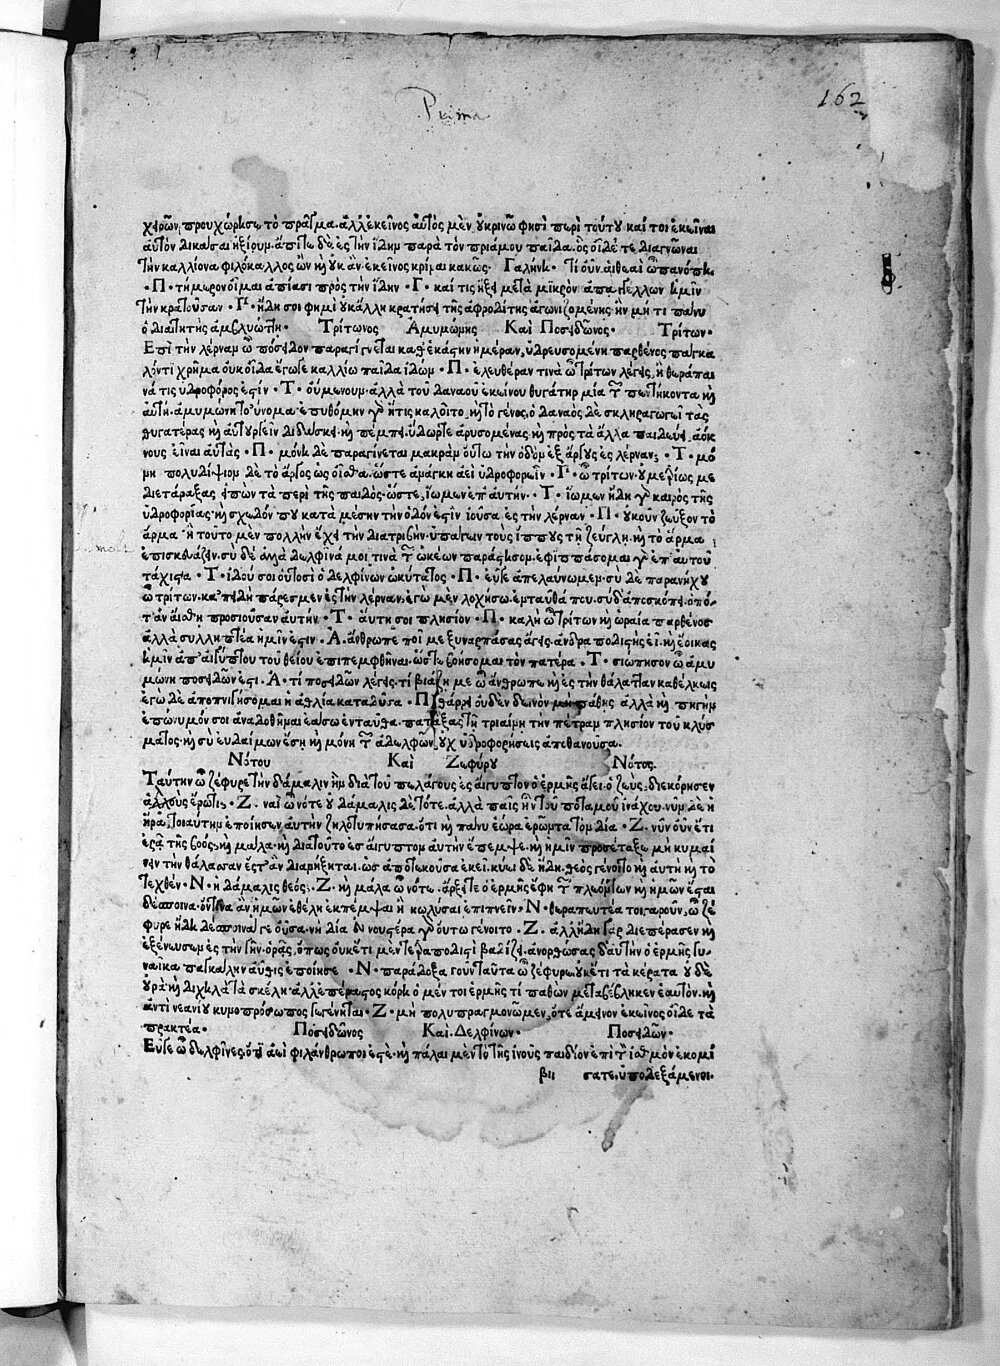 Prima
162
χειρῶν προυχώρησε τὸ πρᾶγμα. ἀλλ' ἐκεῖνος αὐτὸς μὲν οὐ κρινῶ φησὶ περὶ τούτου καί τοι ἐκεῖναι
αὐτὸν δικάσαι ἠξίουν. ἄπιτε δὲ ἐς τὴν ἴδην παρὰ τὸν πριάμου παῖδα. ὃς οἶδέ τε διαγνῶναι
τὴν καλλίονα φιλόκαλλος ὢν καὶ οὐκ ἂν ἐκεῖνος κρίναι κακῶς. Γαλήνη. τί οὖν αἱ θεαὶ ὦ πανόπη.
·Π· τήμερον οἶμαι ἀπίασι πρὸς τὴν ἴδην ·Γ· καί τις ἥξει μετὰ μικρὸν ἀπαγγέλλων ἡμῖν
τὴν κρατοῦσαν ·Π· ἤδη σοι φημὶ οὐκ ἄλλη κρατήσει τῆς ἀφροδίτης ἀγωνιζομένης ἢν μή τι πάνυ
ὁ διαιτητὴς ἀμβλυώττῃ. Τρίτωνος Ἀμυμώμης Καὶ Ποσειδῶνος. Τρίτων.
Επὶ τὴν λέρναν ὦ πόσειδον παραγίνεται καθ' ἑκάστην ἡμέραν, ὑδρευσομένη παρθένος πάγκα
λόν τι χρῆμα οὐκ οἶδα ἔγωγε καλλίω παῖδα ἰδών ·Π· ἐλευθέραν τινὰ ὦ τρίτων λέγεις, ἢ θεράπαι
νά τις ὑδροφόρος ἐστίν ·Τ· οὐ μενοῦν. ἀλλὰ τοῦ δαναοῦ ἐκείνου θυγάτηρ μία τῶν πεντήκοντα καὶ
αὐτή. ἀμυμώνη τοὔνομα. ἐπυθόμην γὰρ ἥτις καλοῖτο, καὶ τὸ γένος. ὁ δαναὸς δὲ σκληραγωγεῖ τὰς
θυγατέρας καὶ αὐτουργεῖν διδάσκει. καὶ πέμπει ὕδωρ τε ἀρυσομένας. καὶ πρὸς τὰ ἄλλα παιδεύει ἀόκ
νους εἶναι αὐτὰς ·Π· μόνη δὲ παραγίνεται μακρὰν οὕτω τὴν ὁδὸν ἐξ ἄργους ἐς λέρναν; ·Τ· μό
νη πολυδίψιον δὲ τὸ ἄργος ὡς οἶσθα. ὥστε ἀνάγκη ἀεὶ ὑδροφορεῖν ·Π· ὦ τρίτων. οὐ μετρίως με
διετάραξας εἰπὼν τὰ περὶ τῆς παιδός. ὥστε, ἴωμεν ἐπ' αὐτήν. ·Τ· ἴωμεν ἤδη γὰρ καιρὸς τῆς
ὑδροφορίας. καὶ σχεδόν που κατὰ μέσην τὴν ὁδόν ἐστιν ἰοῦσα ἐς τὴν λέρναν ·Π· οὐκοῦν ζεῦξον τὸ
ἅρμα. ἢ τοῦτο μὲν πολλὴν ἔχει τὴν διατριβὴν. ὑπάγων τοὺς ἵππους τῇ ζεύγλῃ. καὶ τὸ ἅρμα
ἐπισκευάζειν. σὺ δὲ ἀλλὰ δελφῖνά μοι τινὰ τῶν ὠκέων παράστησον. ἐφιππάσομαι γὰρ ἐπ' αὐτοῦ
τάχιστα ·Τ· ἰδού σοι οὑτοσὶ ὁ δελφίνων ὠκύτατος ·Π· εὖγε ἀπελαύνωμεν. σὺ δὲ παρανήχου
ὦ τρίτων. κἀπειδὴ πάρεσμεν ἐς τὴν λέρναν, ἐγὼ μὲν λοχήσω. ἐνταῦθά που. σὺ δ' ἀποσκόπει. ὁπό
τ' ἂν αἴσθῃ προσιοῦσαν αὐτήν ·Τ· αὕτη σοι πλησίον ·Π· καλὴ ὦ τρίτων καὶ ὡραία παρθένος
ἀλλὰ συλληπτέα ἡμῖν ἐστιν ·Α· ἄνθρωπε ποῖ με ξυναρπάσας ἄγεις. ἀνδραποδιστὴς εἶ. καὶ ἔοικας
ἡμῖν ἀπ' αἰγύπτου τοῦ θείου ἐπιπεμφθῆναι. ὥστε βοήσομαι τὸν πατέρα ·Τ· σιώπησον ὦ ἀμυ
μώνη ποσειδῶν ἐστι ·Α· τί ποσειδῶν λέγεις. τί βιάζῃ με ὦ ἄνθρωπε καὶ ἐς τὴν θάλατταν καθέλκεις
ἐγὼ δὲ ἀποπνιγήσομαι ἡ ἀθλία καταδῦσα ·Π· θάρρει οὐδὲν δεινὸν μὴ πάθῃς ἀλλὰ καὶ πηγὴν
ἐπώνυμόν σοι ἀναδοθῆναι ἐάσω ἐνταῦθα. πατάξας τῇ τριαίνῃ τὴν πέτραν πλησίον τοῦ κλύσ
ματος. καὶ σὺ εὐδαίμων ἔσῃ καὶ μόνη τῶν ἀδελφῶν οὐχ ὑδροφορήσεις ἀποθανοῦσα.
Νότου Καὶ Ζεφύρου Νότος.
Ταύτην ὦ ζέφυρε τὴν δάμαλιν ἣν διὰ τοῦ πελάγους ἐς αἴγυπτον ὁ ἑρμῆς ἄγει. ὁ ζεὺς, διεκόρησεν
ἁλοὺς ἔρωτι, ·Ζ· ναὶ ὦ νότε οὐ δάμαλις δὲ τότε. ἀλλὰ παῖς ἦν τοῦ ποταμοῦ ἰνάχου. νῦν δὲ ἡ
ἥρα, τοιαύτην ἐποίησεν αὐτὴν ζηλοτυπήσασα. ὅτι καὶ πάνυ ἑώρα ἐρῶντα τὸν δία ·Ζ· νῦν οὖν ἔτι
ἐρᾷ τῆς βοός, καὶ μάλα. καὶ διὰ τοῦτο ἐς αἴγυπτον αὐτὴν ἔπεμψε. καὶ ἡμῖν προσέταξε μὴ κυμαί
νειν τὴν θάλασσαν ἔς τ' ἂν διανήξηται. ὡς ἀποτεκοῦσα ἐκεῖ. κύει δὲ ἤδη. θεὸς γένοιτο καὶ αὐτὴ καὶ τὸ
τεχθέν ·Ν· ἡ δάμαλις θεός; ·Ζ· καὶ μάλα ὦ νότε. ἄρξει τε ὁ ἑρμῆς ἔφη τῶν πλεόντων καὶ ἡμῶν ἔσται
δέσποινα. ὅντινα ἂν ἡμῶν ἐθέλῃ ἐκπέμψαι ἢ κωλῦσαι ἐπιπνεῖν ·Ν· θεραπευτέα τοιγαροῦν, ὦ ζέ
φυρε ἤδη δέσποινά γε οὖσα. νὴ δία εὐνουστέρα γὰρ οὕτω γένοιτο ·Ζ· ἀλλ' ἤδη γὰρ διεπέρασεν καὶ
ἐξένευσεν ἐς τὴν γῆν. ὁρᾷς, ὅπως οὐκέτι μὲν τετραποδιστὶ βαδίζει. ἀνορθώσας δ' αὐτὴν ὁ ἑρμῆς γυ
ναῖκα παγκάλην αὖθις ἐποίησε ·Ν· παράδοξα γοῦν ταῦτα ὦ ζέφυρε. οὐκέτι τὰ κέρατα οὐδὲ
οὐρὰ καὶ διχηλὰ τὰ σκέλη. ἀλλ' ἐπέραστος κόρη ὁ μέν τοι ἑρμῆς τί παθὼν μεταβέβληκεν ἑαυτόν. καὶ
ἀντὶ νεανίου κυνοπρόσωπος γεγένηται ·Ζ· μὴ πολυπραγμονῶμεν, ὅτε ἄμεινον ἐκεῖνος οἶδε τὰ
πρακτέα. Ποσειδῶνος Καὶ Δελφίνων. Ποσειδῶν.
Εὖγε ὦ δελφῖνες, ὅτι ἀεὶ φιλάνθρωποι ἐστέ. καὶ πάλαι μὲν τὸ τῆς ἰνοῦς παιδίον ἐπὶ τὸν ἰσθμὸν ἐκομί
βιι σατε. ὑποδεξάμενοι.